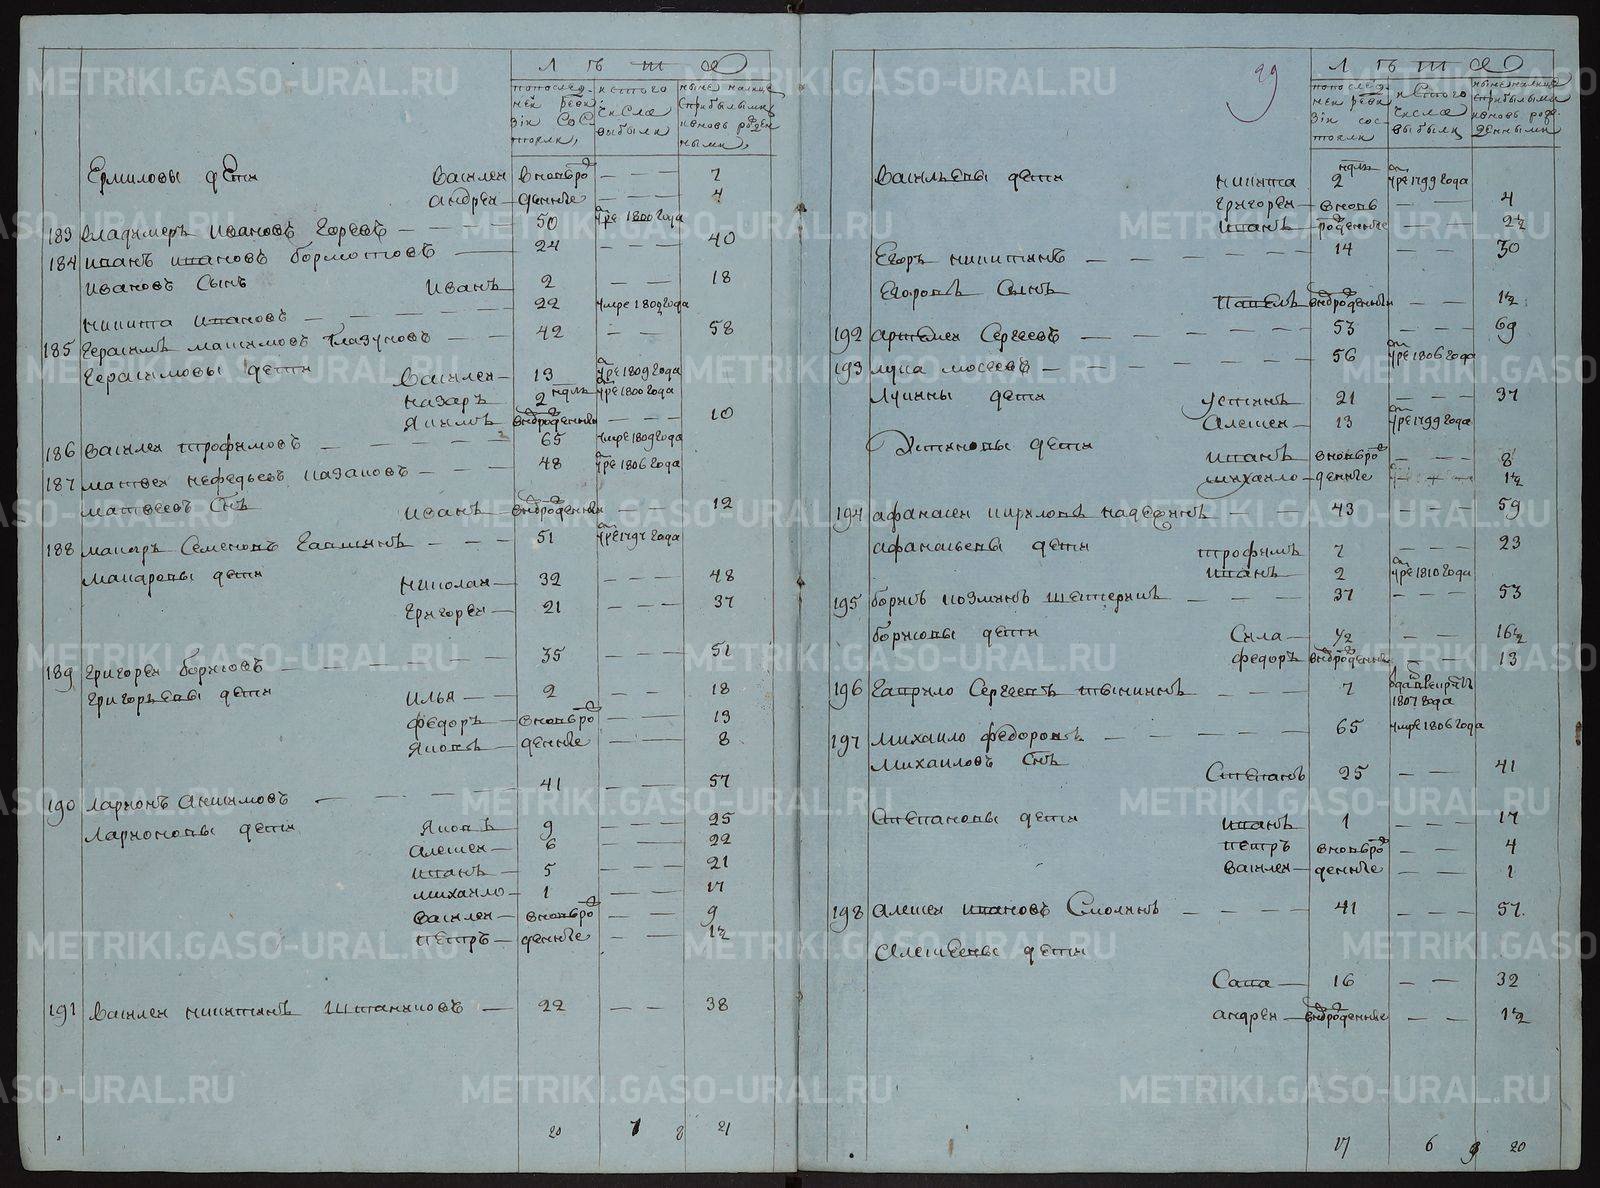 Л Ѣ Т А
по послед-
ней реви-
зіи сос-
тояли,
ис того
числа
выбыли
ныне налицо
с прибылыми
и вновь рожден
ными,
Ермиловы дети Василей вновьро 7
Андрей денные 4
183 Владимеръ Ивановъ 50 уре 1800 года
184 Иванъ Ивановъ Бормотовъ 24 — — 40
Ивановъ сынъ Иванъ 2 18
Никита Ивановъ 22 умре 1809 года
185 Герасимъ Максимовъ Глазуновъ 42 — — 58
Герасимовы дети Василей 13 уре 1809 года
Назаръ 2 недль уре 1800 года
Якимъ внврожденный — — — 10
186 Василей Трофимовъ 65 умре 1809 года
187 Матвей Нефедьевъ Казаковъ 48 уре 1806 года
Матвеевъ снъ Иванъ внврожденный — — 12
188 Макаръ Семеновъ 51 уре 1797 года
Макаровы дети Николай 32 — — — 48
Григорей 21 — — — 37
189 Григорей Борисовъ 35 — — — 51
Григорьевы дети Илья 2 — — 18
Федоръ вновьро — — 13
Яковъ денные — — 8
190 Ларионъ Акимовъ 41 — — 57
Ларионовы дети Яковъ 9 — — 25
Алексей 6 — — 22
Иванъ 5 — — 21
Михайло 1 — — 17
Василей вновьро — — 9
Петръ денные — — 1½
191 Василей Никитинъ 22 — — 38
20 7 8 21
99
Л Ѣ Т А
по послед-
ней реви-
зіи сос-
тояли
ис того
числа
выбыли
ныне налицо
с прибылыми
и вновь рож-
денными
Васильевы дети Никита 2 недль уре 1799 года
Григорей вновь — — 4
Иванъ рожденные — — 2½
Егоръ Никитинъ 14 — — 30
Егоровъ сынъ Павелъ внврожденный — — 1½
192 Артемей Сергеевъ 53 — — 69
193 Лука Мосеевъ 56 уре 1806 года
Лукины дети Устинъ 21 — — — 37
Алексей 13 уре 1799 года
Устиновы дети Иванъ вновьро — — — 8
Михайло денные 1½
194 Афанасей Кириловъ 43 — — — 59
Афанасьевы дети Трофимъ 7 — — — 23
Иванъ 2 уре 1810 года
195 Борисъ Козминъ 37 — — — 53
Борисовы дети Сила ½ — — 16½
Федоръ внврожденный — — 13
196 Гаврило Сергеевъ 7 отданъ в рекруты 1807 года
197 Михайло Федоровъ 65 умре 1806 года
Михайловъ снъ Степанъ 25 — — 41
Степановы дети Иванъ 1 — — 17
Петръ вновьро — — 4
Василей денные — — 1
198 Алексей Ивановъ Смолинъ 41 — — — 57
Алексеевы дети
Савва 16 — — — 32
Андрей внврожденные — — 1½
17 6 9 20
METRIKI.GASO-URAL.RU